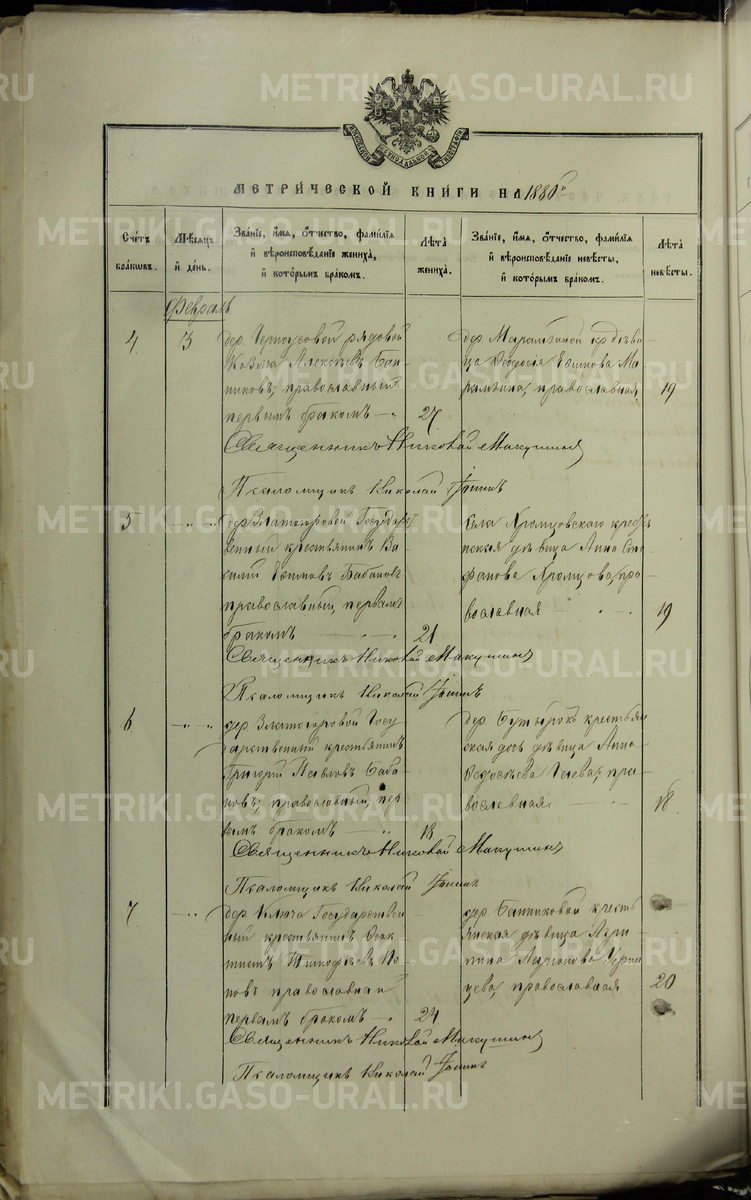 METRIKI.GASO-URAL.RU
МОСКОВСКОЙ СѴНОДАЛЬНОЙ ТИПОГРАФІИ
МЕТРИЧЕСКОЙ КНИГИ НА 1880 г.
Счетъ браковъ.
Мѣсяцъ и день.
Званіе, имя, отчество, фамилія и вѣроисповѣданіе жениха, и которымъ бракомъ.
Лѣта жениха.
Званіе, имя, отчество, фамилія и вѣроисповѣданіе невѣсты, и которымъ бракомъ.
Лѣта невѣсты.
Февраль
4 13
дер. Черноусовой рядовой
Козма Алексѣевъ Бан-
никовъ, православный
первымъ бракомъ — 27
дер. Марамзиной кр. дѣви-
ца Ѳеодосія Ефимова Ма-
рамзина, православная 19
Священникъ Николай Макушинъ
Псаломщикъ Николай
5
дер. Златогоровой Государст-
венный крестьянинъ Ва-
силий Ефимовъ Бабиновъ
православный, первымъ
бракомъ — 21
Села Хромцовскаго крестья-
нская дѣвица Анна Сте-
фанова Хромцова, пра-
вославная 19
Священникъ Николай Макушинъ
Псаломщикъ Николай
6
дер. Златогоровой Госу-
дарственный крестьянинъ
Григорій Павловъ Баби-
новъ, православный, пер-
вымъ бракомъ — 18
дер. крестьян-
ская дочь дѣвица Анна
Ѳедосѣева пра-
вославная 18
Священникъ Николай Макушинъ
Псаломщикъ Николай
7
дер. Ключа Государствен-
ный крестьянинъ Ѳеок-
тистъ Тимофѣевъ По-
повъ православный
первымъ бракомъ — 24
дер. Банниковой кресть-
янская дѣвица Агри-
пина Ларіонова
православная 20
Священникъ Николай Макушинъ
Псаломщикъ Николай